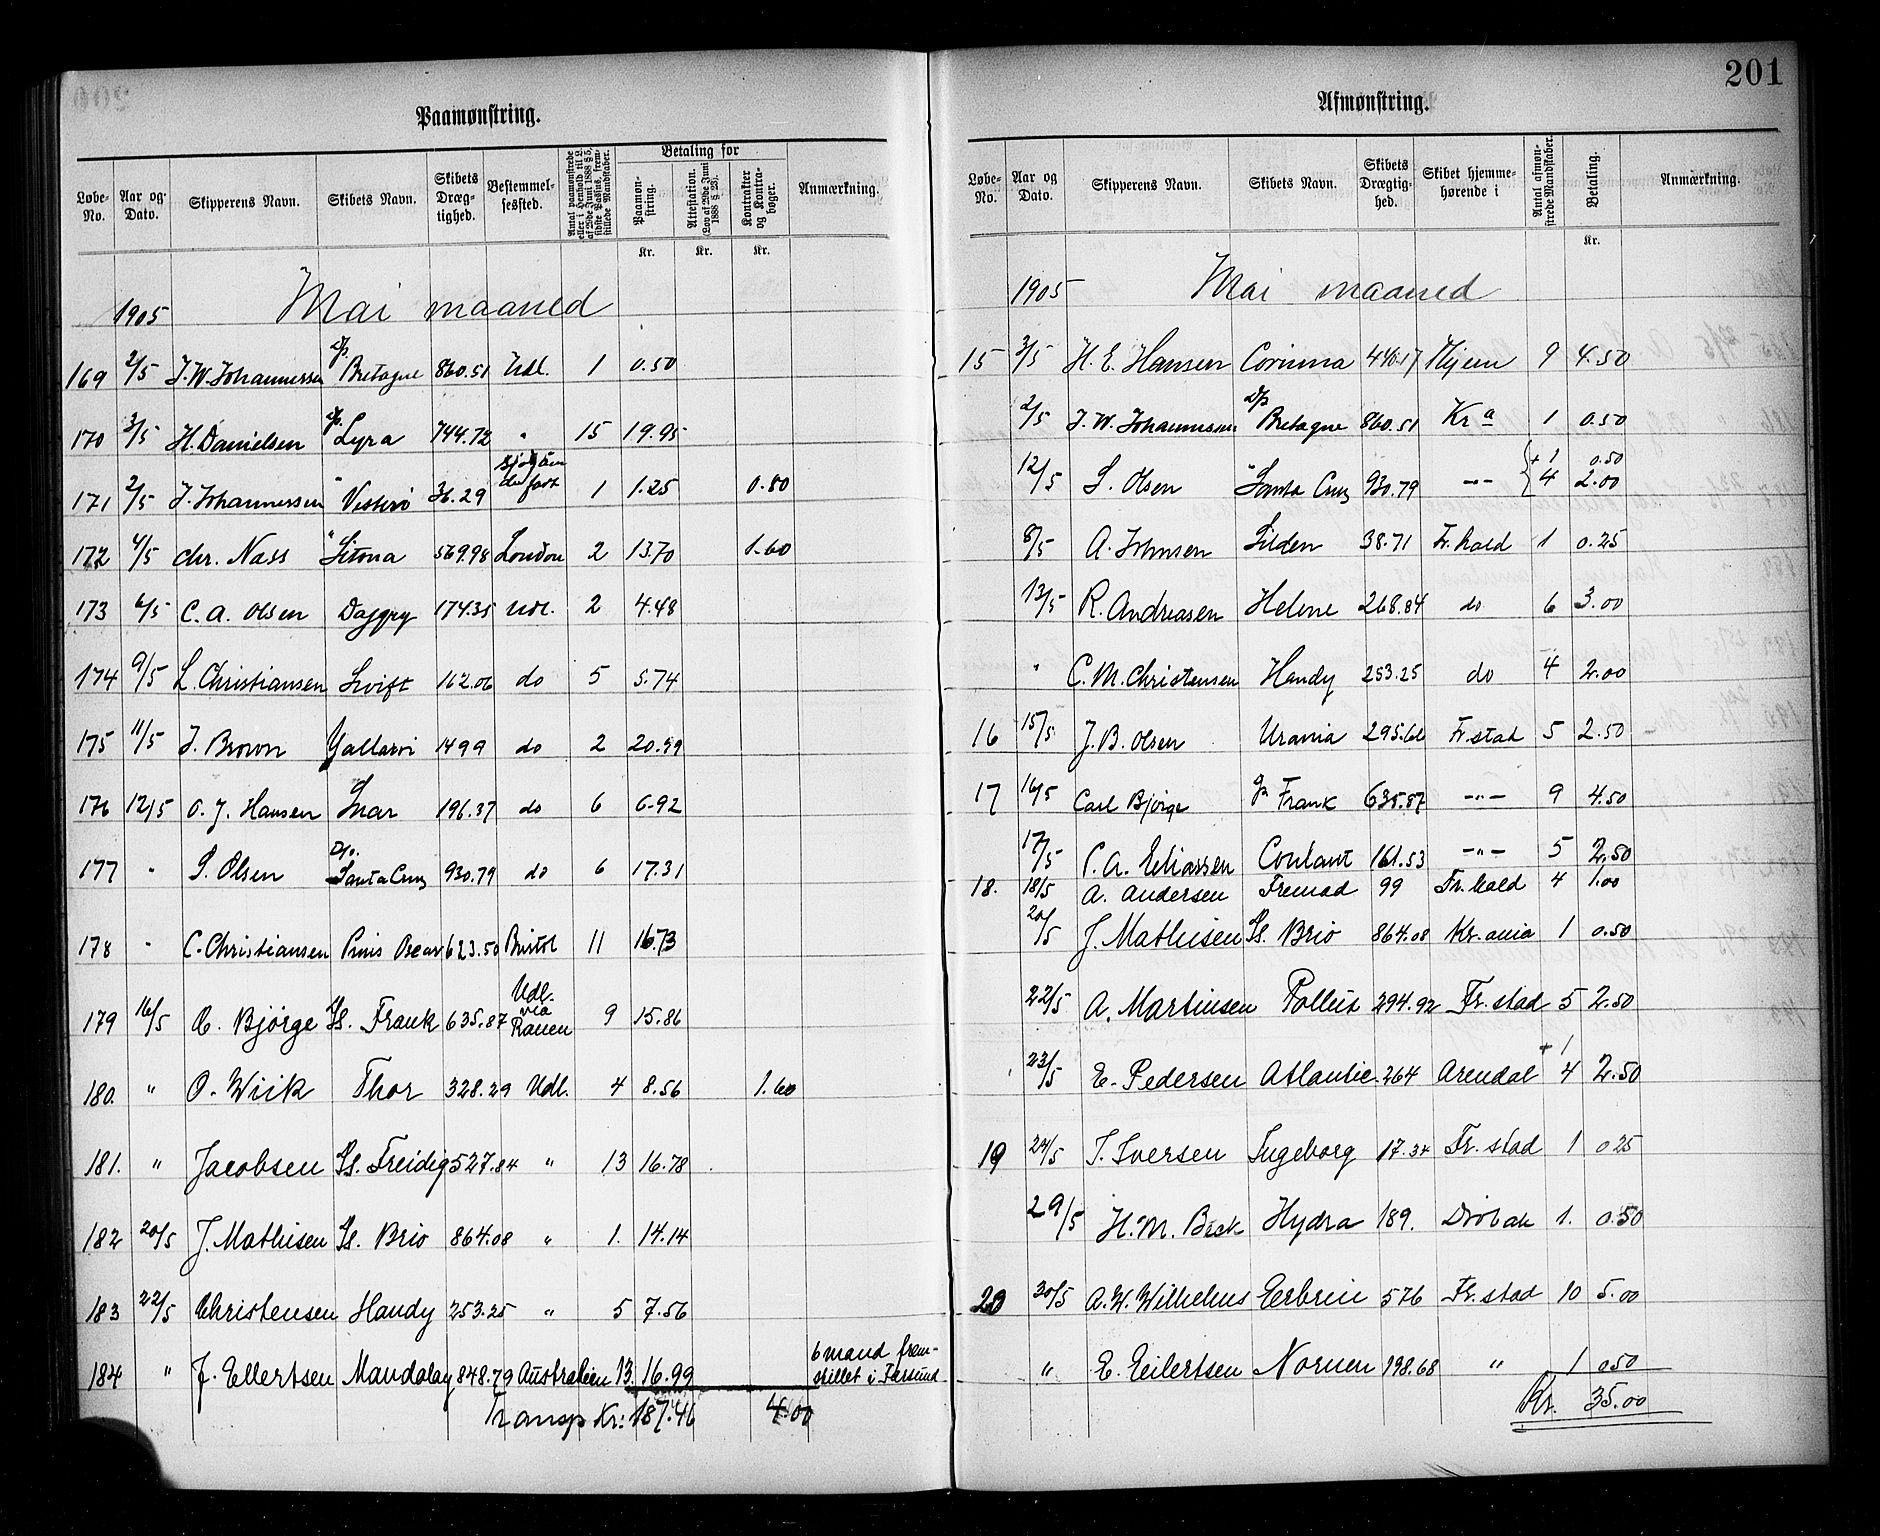 Paamønstring.
Løbe-No. Aar og Dato. Skipperens Navn. Skibets Navn. Skibets Dræg-tighed. Bestemmel-sessted. Betaling for Paamøn-string. Attestation. (Lov af 29de Juni 1888 § 25). Kontrakter og Kontra-bøger. Anmærkning.
Kr. Kr. Kr.
1905 Mai maaned
169 2/5 J. W. Johannessen D/s Bretagne 860.51 Udl. 1 0.50
170 3/5 H. Danielsen D/s. Lyra 744.72 " 15 19.95
171 2/5 J. Johannessen " Vesterö 36.29 1 1.25 0.80
172 4/5 Chr. Nass " Sitona 569.98 London 2 13.70 1.60
173 6/5 C. A. Olsen Daggry 174.35 Udl. 2 4.48
174 9/5 L. Christiansen Svift 162.06 do 5 5.74
175 11/5 J. Brown Yallaroi 1499 do 2 20.99
176 12/5 O. J. Hansen Snar 196.37 do 6 6.92
177 " S. Olsen D/s. Santa Cruz 930.79 do 6 17.31
178 " C. Christiansen Prins Oscar 623.50 Bristol 11 16.73
179 16/5 C. Bjørge Ss. Frank 635.87 Udl. via Rauen 9 15.86
180. " O. Wiik Thor 328.29 Udl. 4 8.56 1.60
181. " Jacobsen Ss. Freidig 527.84 " 13 16.78
182 20/5 J. Mathisen Ss. Brio 864.08 " 1. 14.14
183 22/5 Christensen Handy 253.25 " 5 7.56
184 " J. Ellertsen Mandalay 848.79 Australien 13. 16.99 6 mand frem-stillet i Farsund
Transp Kr: 187.46 4.00
201
Afmønstring.
Løbe-No. Aar og Dato. Skipperens Navn. Skibets Navn. Skibets Drægtig-hed. Skibet hjemme-hørende i Antal afmøn-strede Mandskaber. Betaling. Anmærkning.
Kr.
1905 Mai maaned
15 3/5 H. E. Hansen Corinna 440.17 Hjem 9 4.50
2/5 J. W. Johannessen D/s Bretagne 860.51 Kra 1 0.50
12/5 S. Olsen " Santa Cruz 930.79 -"- + 1 0.50
4 2.00
8/5 A. Johnsen Silden 38.71 Fr.hald 1 0.25
13/5 R. Andreasen Helene 268.84 do 6 3.00
" C. M. Christensen Handy 253.25 do 4 2.00
16 15/5 J. B. Olsen Urania 295.66 Fr.stad 5 2.50
17 16/5 Carl Bjørge Ss Frank 635.87 -"- 9 4.50
17/5 C. A. Eliassen Contant 161.53 -"- 5 2.50
18. 18/5 A. Andersen Fremad 99 Fr.hald 4 1.00
20/5 J. Mathisen Ss. Brio 864.08 Kr.ania 1 0.50
22/5 A. Martinsen Pollux 294.92 Fr.stad 5 2.50
23/5 E. Pedersen Atlantic. 264 Arendal + 1 4 2.50
19 24/5 I. Iversen Ingeborg 17.34 Fr.stad 1 0 25
29/5 H. M. Beck Hydra 189. Dröbak 1. 0.50
20 30/5 A. W. Wilhelms 576 Fr.stad 10 5.00
" E. Eilertsen Nornen 198.68 " 1 0.50
Kr. 35.00